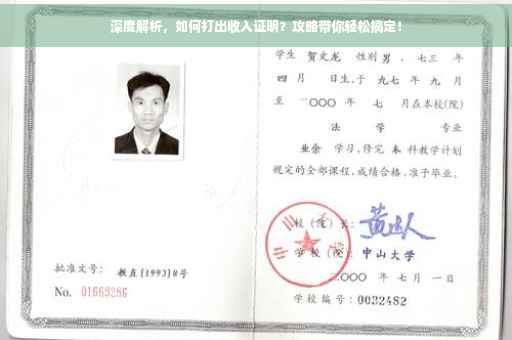 深度解析，如何打出收入证明？攻略带你轻松搞定！
学生 贺文龙 性别 男，七三 年
四 月 日生，于 九七 年 九 月
至 二〇〇〇 年 七 月在本校(院)
法 学 专业
业余 学习，修完 本 科教学计划
规定的全部课程，成绩合格，准予毕业。
校(院)长：
学校(院)：中山大学
二〇〇〇 年 七 月 一 日
学校编号：0032482
批准文号：教直[1993]8号
No. 01669286